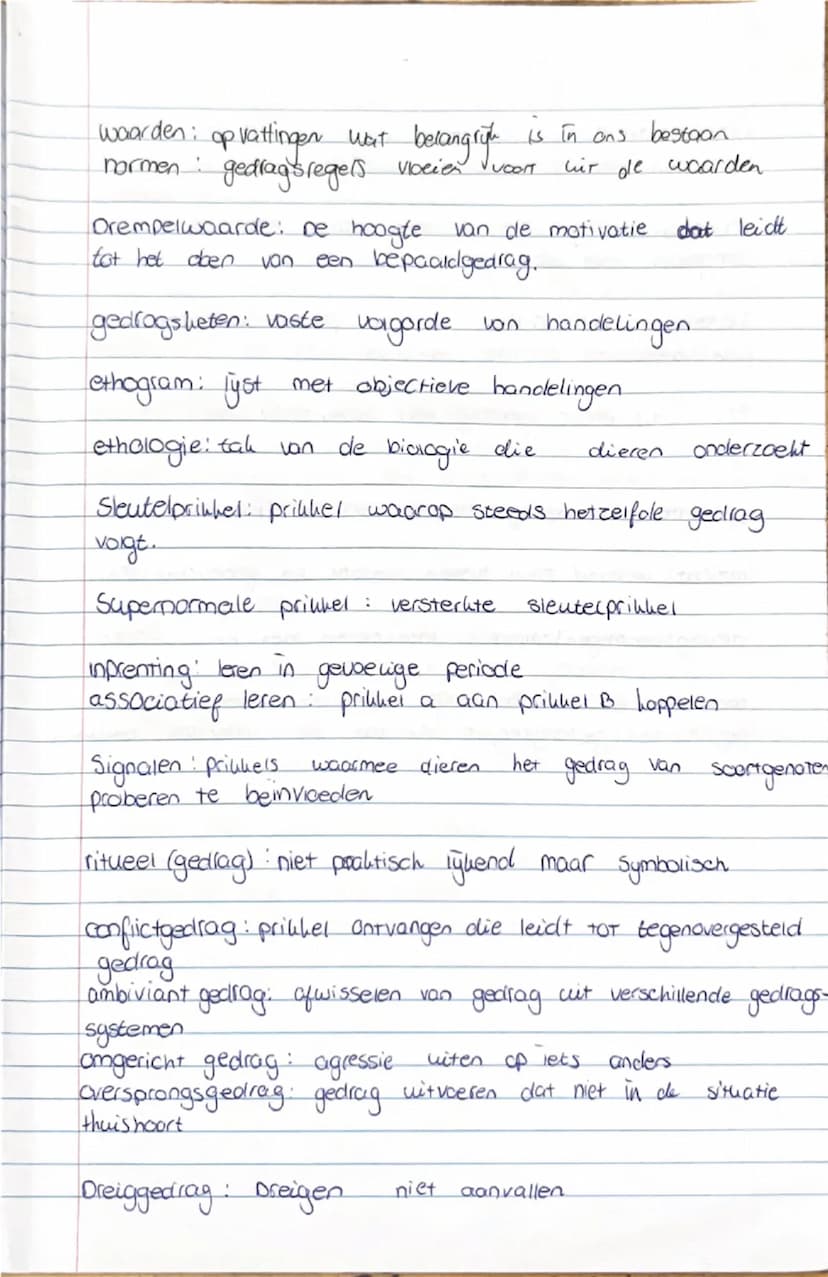 waarden: opvattingen wat belangrijk is in ons bestaan
normen : gedragsregels vloeien voort uit de waarden
Drempelwaarde: De hoogte van de motivatie dat leidt
tot het doen van een bepaaldgedrag.
gedragsketen: vaste volgorde von handelingen
ethogram: lijst met objectieve handelingen
ethologie: tak van de biologie die dieren onderzoekt
Sleutelprikkel: prikkel waarop steeds hetzelfde gedrag
volgt.
Supernormale prikkel : versterkte sleutelprikkel
inprenting: leren in gevoelige periode
associatief leren : prikkel a aan prikkel B koppelen
Signalen : prikkels waarmee dieren het gedrag van soortgenoten
proberen te beïnvloeden
ritueel (gedrag) : niet praktisch lijkend maar symbolisch
conflictgedrag : prikkel ontvangen die leidt tot tegenovergesteld
gedrag
ambiviant gedrag: afwisselen van gedrag uit verschillende gedrags-
systemen
omgericht gedrag : agressie uiten op iets anders
oversprongsgedrag: gedrag uitvoeren dat niet in de situatie
thuishoort
Dreiggedrag : Dreigen niet aanvallen